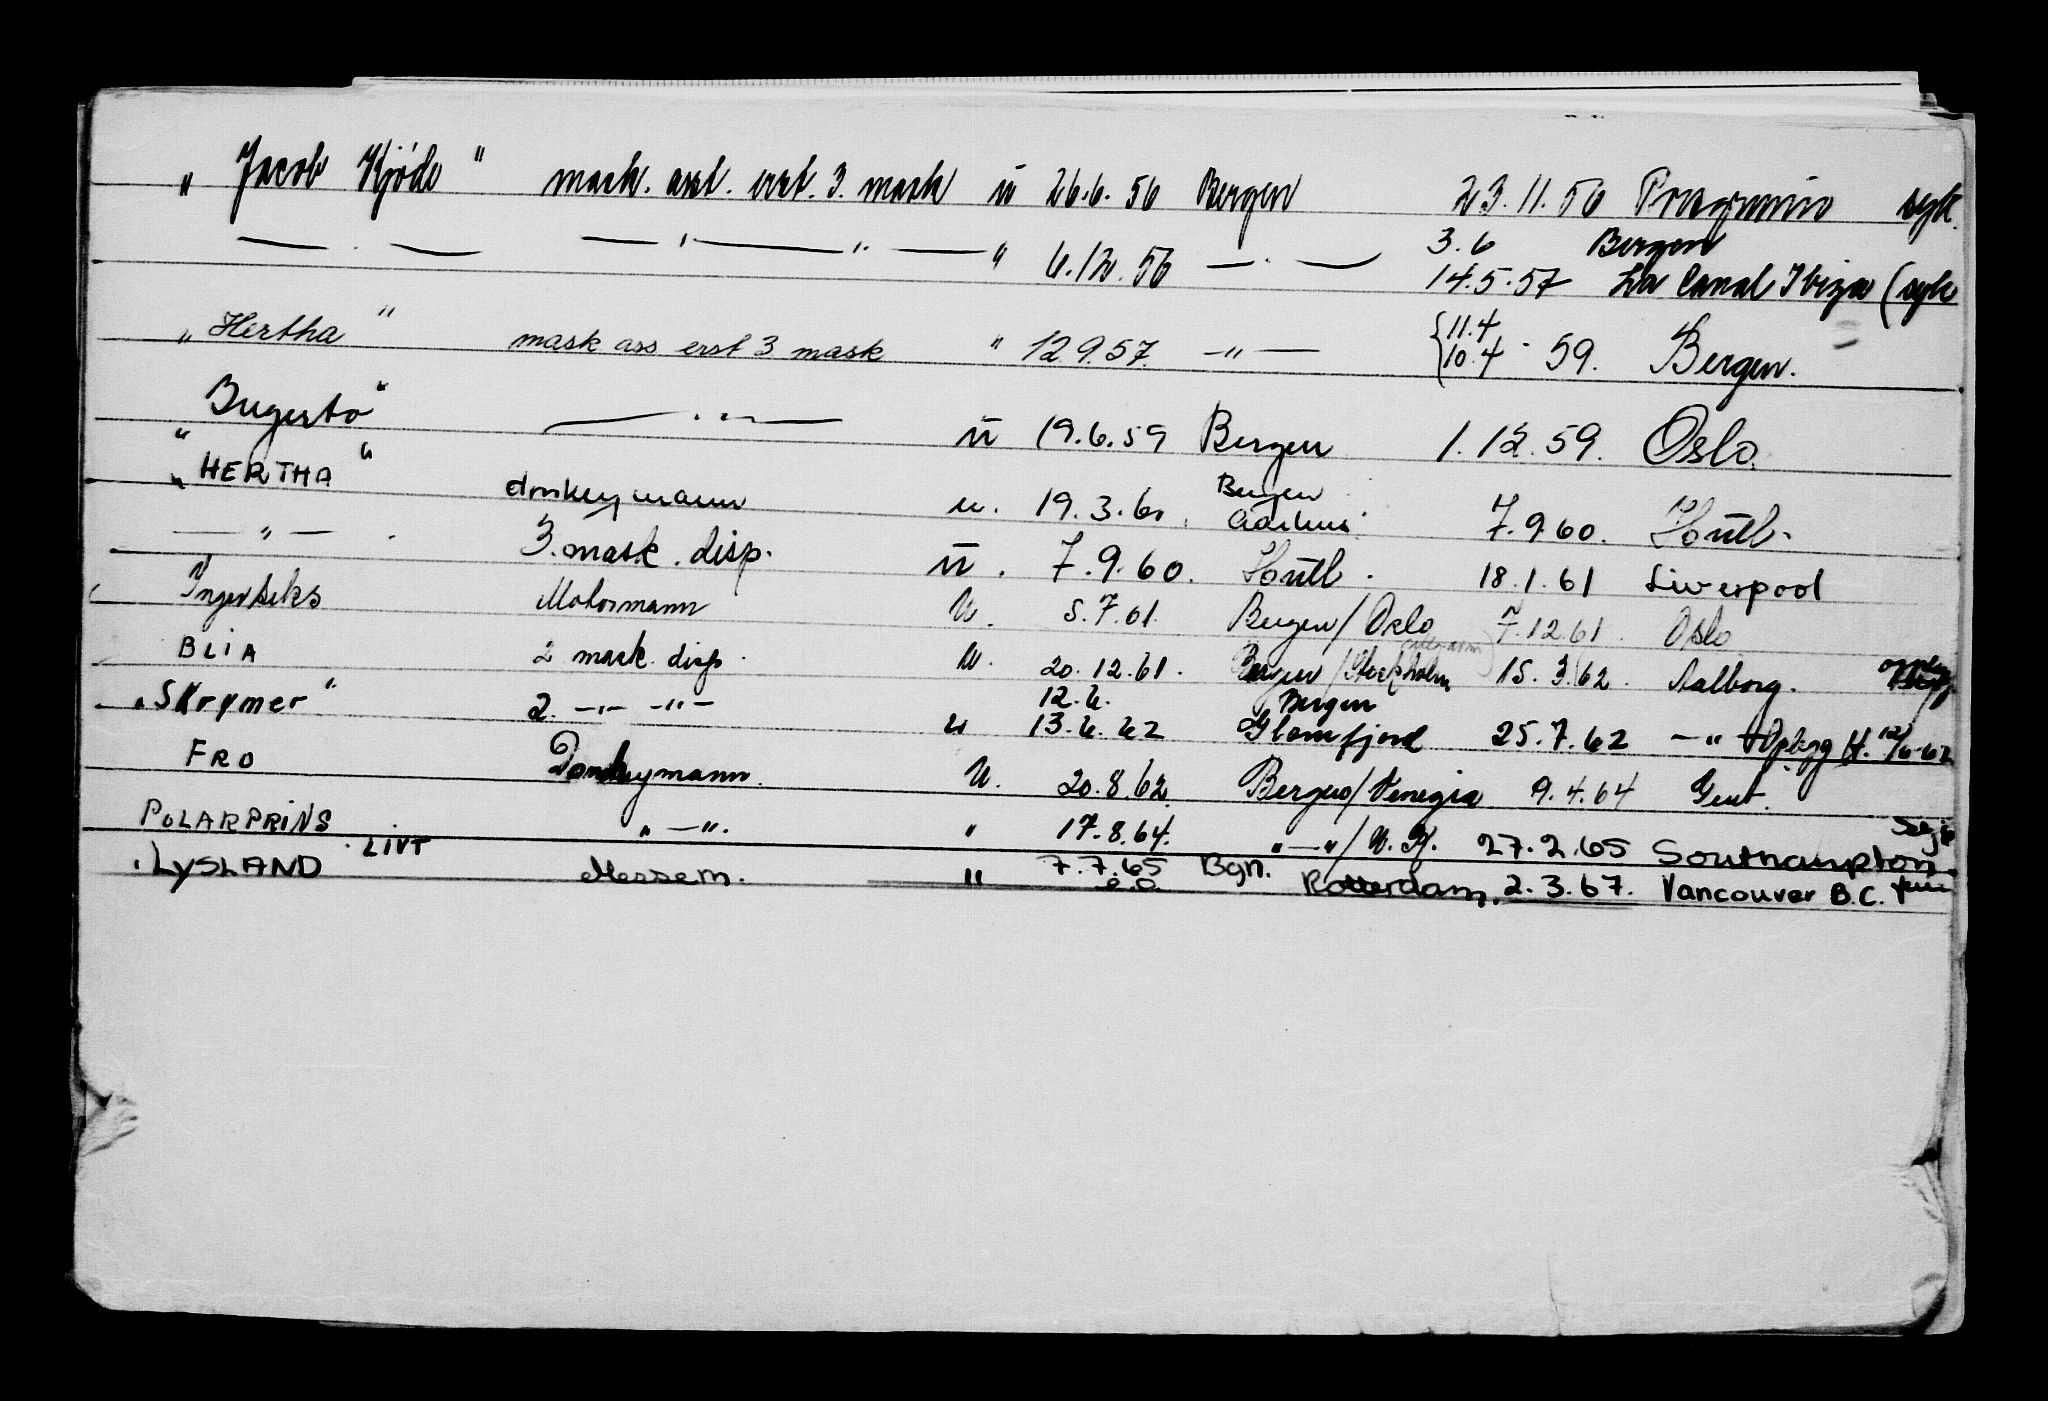 „ Jacob Kjöde " mask. asst. erst. 3. mask u 26.6.56 Bergen 23.11.56 syk.
— . — — " — " — " 6.12.56 — . — 3.6 Bergen
14.5.57 La Canal Ibiza (syk
„ Hertha " mask ass erst 3 mask " 12.9.57. — " — {11.4 10.4 - 59. Bergen.
" — . . — u 19.6.59 Bergen 1.12.59. Oslo.
„ HERTHA " donkeymann u. 19.3.60. Bergen Aarhus 7.9.60.
— " — . 3. mask. disp. u. 7.9.60. 18.1.61 Liverpool
Ingerseks Motormann U. 5.7.61. Bergen/Oslo 7.12.61. Oslo
BLIA 2 mask. disp. U. 20.12.61. Bergen/Stockholm 15.3.62. Aalborg.
„ Skrymer " 2. — " — — " — u 12.6. 13.6.62 Bergen Glomfjord 25.7.62 — " Opplegg H. 12/6-62
FRO Donkeymann. U. 20.8.62. Bergen/Venezia 9.4.64 Gent.
POLARPRINS „ — ". " 17.8.64. „ — "/ 27.2.65 Southampton.
. LYSLAND . LIVT Messem. " 7.7.65 Bgn. Rotterdam. 2.3.67. Vancouver B.C.